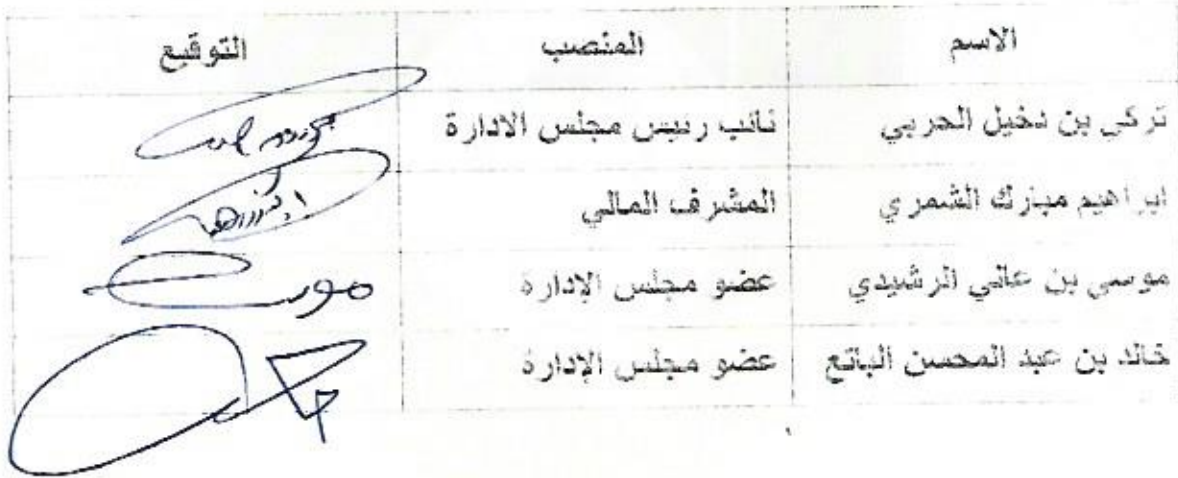 الاسم المنصب التوقيع
تركي بن دخيل الحربي نائب رئيس مجلس الادارة
ابراهيم مبارك الشمري المشرف المالي
موسى بن عالي الرشيدي عضو مجلس الإدارة
خالد بن عبد المحسن البائع عضو مجلس الإدارة